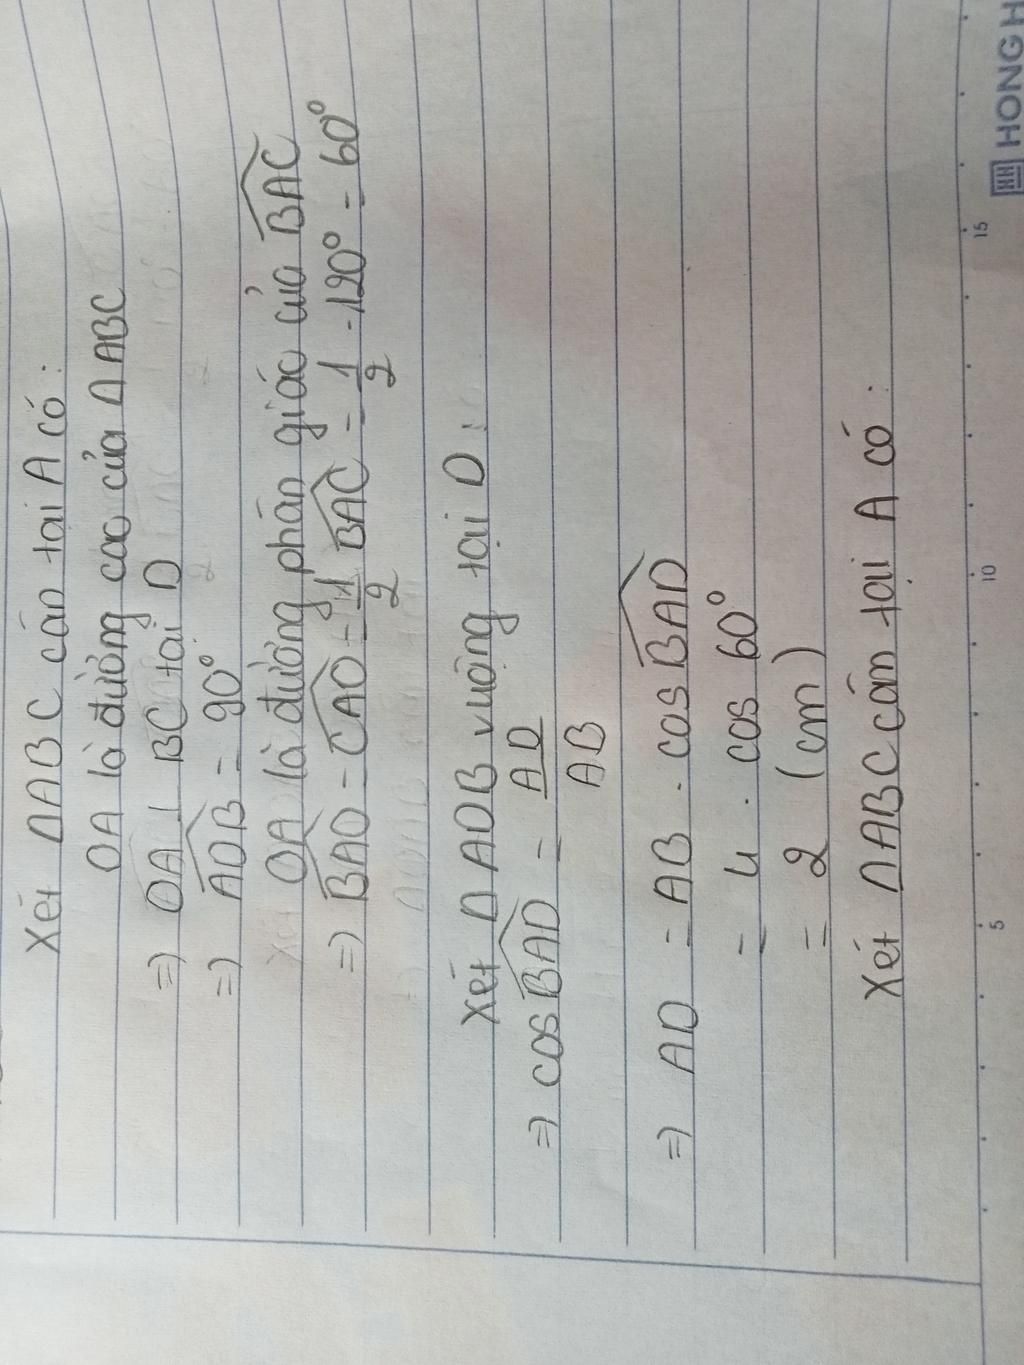 Xét ΔABC cân tại A có:
OA là đường cao của ΔABC
=) OA ⊥ BC tại D
=) \widehat{ADB} = 90°
OA là đường phân giác của \widehat{BAC}
=) \widehat{BAD} = \widehat{CAD} = \frac{1}{2} \widehat{BAC} = \frac{1}{2} . 120° = 60°
Xét ΔADB vuông tại D:
=) cos \widehat{BAD} = \frac{AD}{AB}
=) AD = AB . cos \widehat{BAD}
= 4 . cos 60°
= 2 (cm)
Xét ΔABC cân tại A có:
5 10 15
HH HONG H